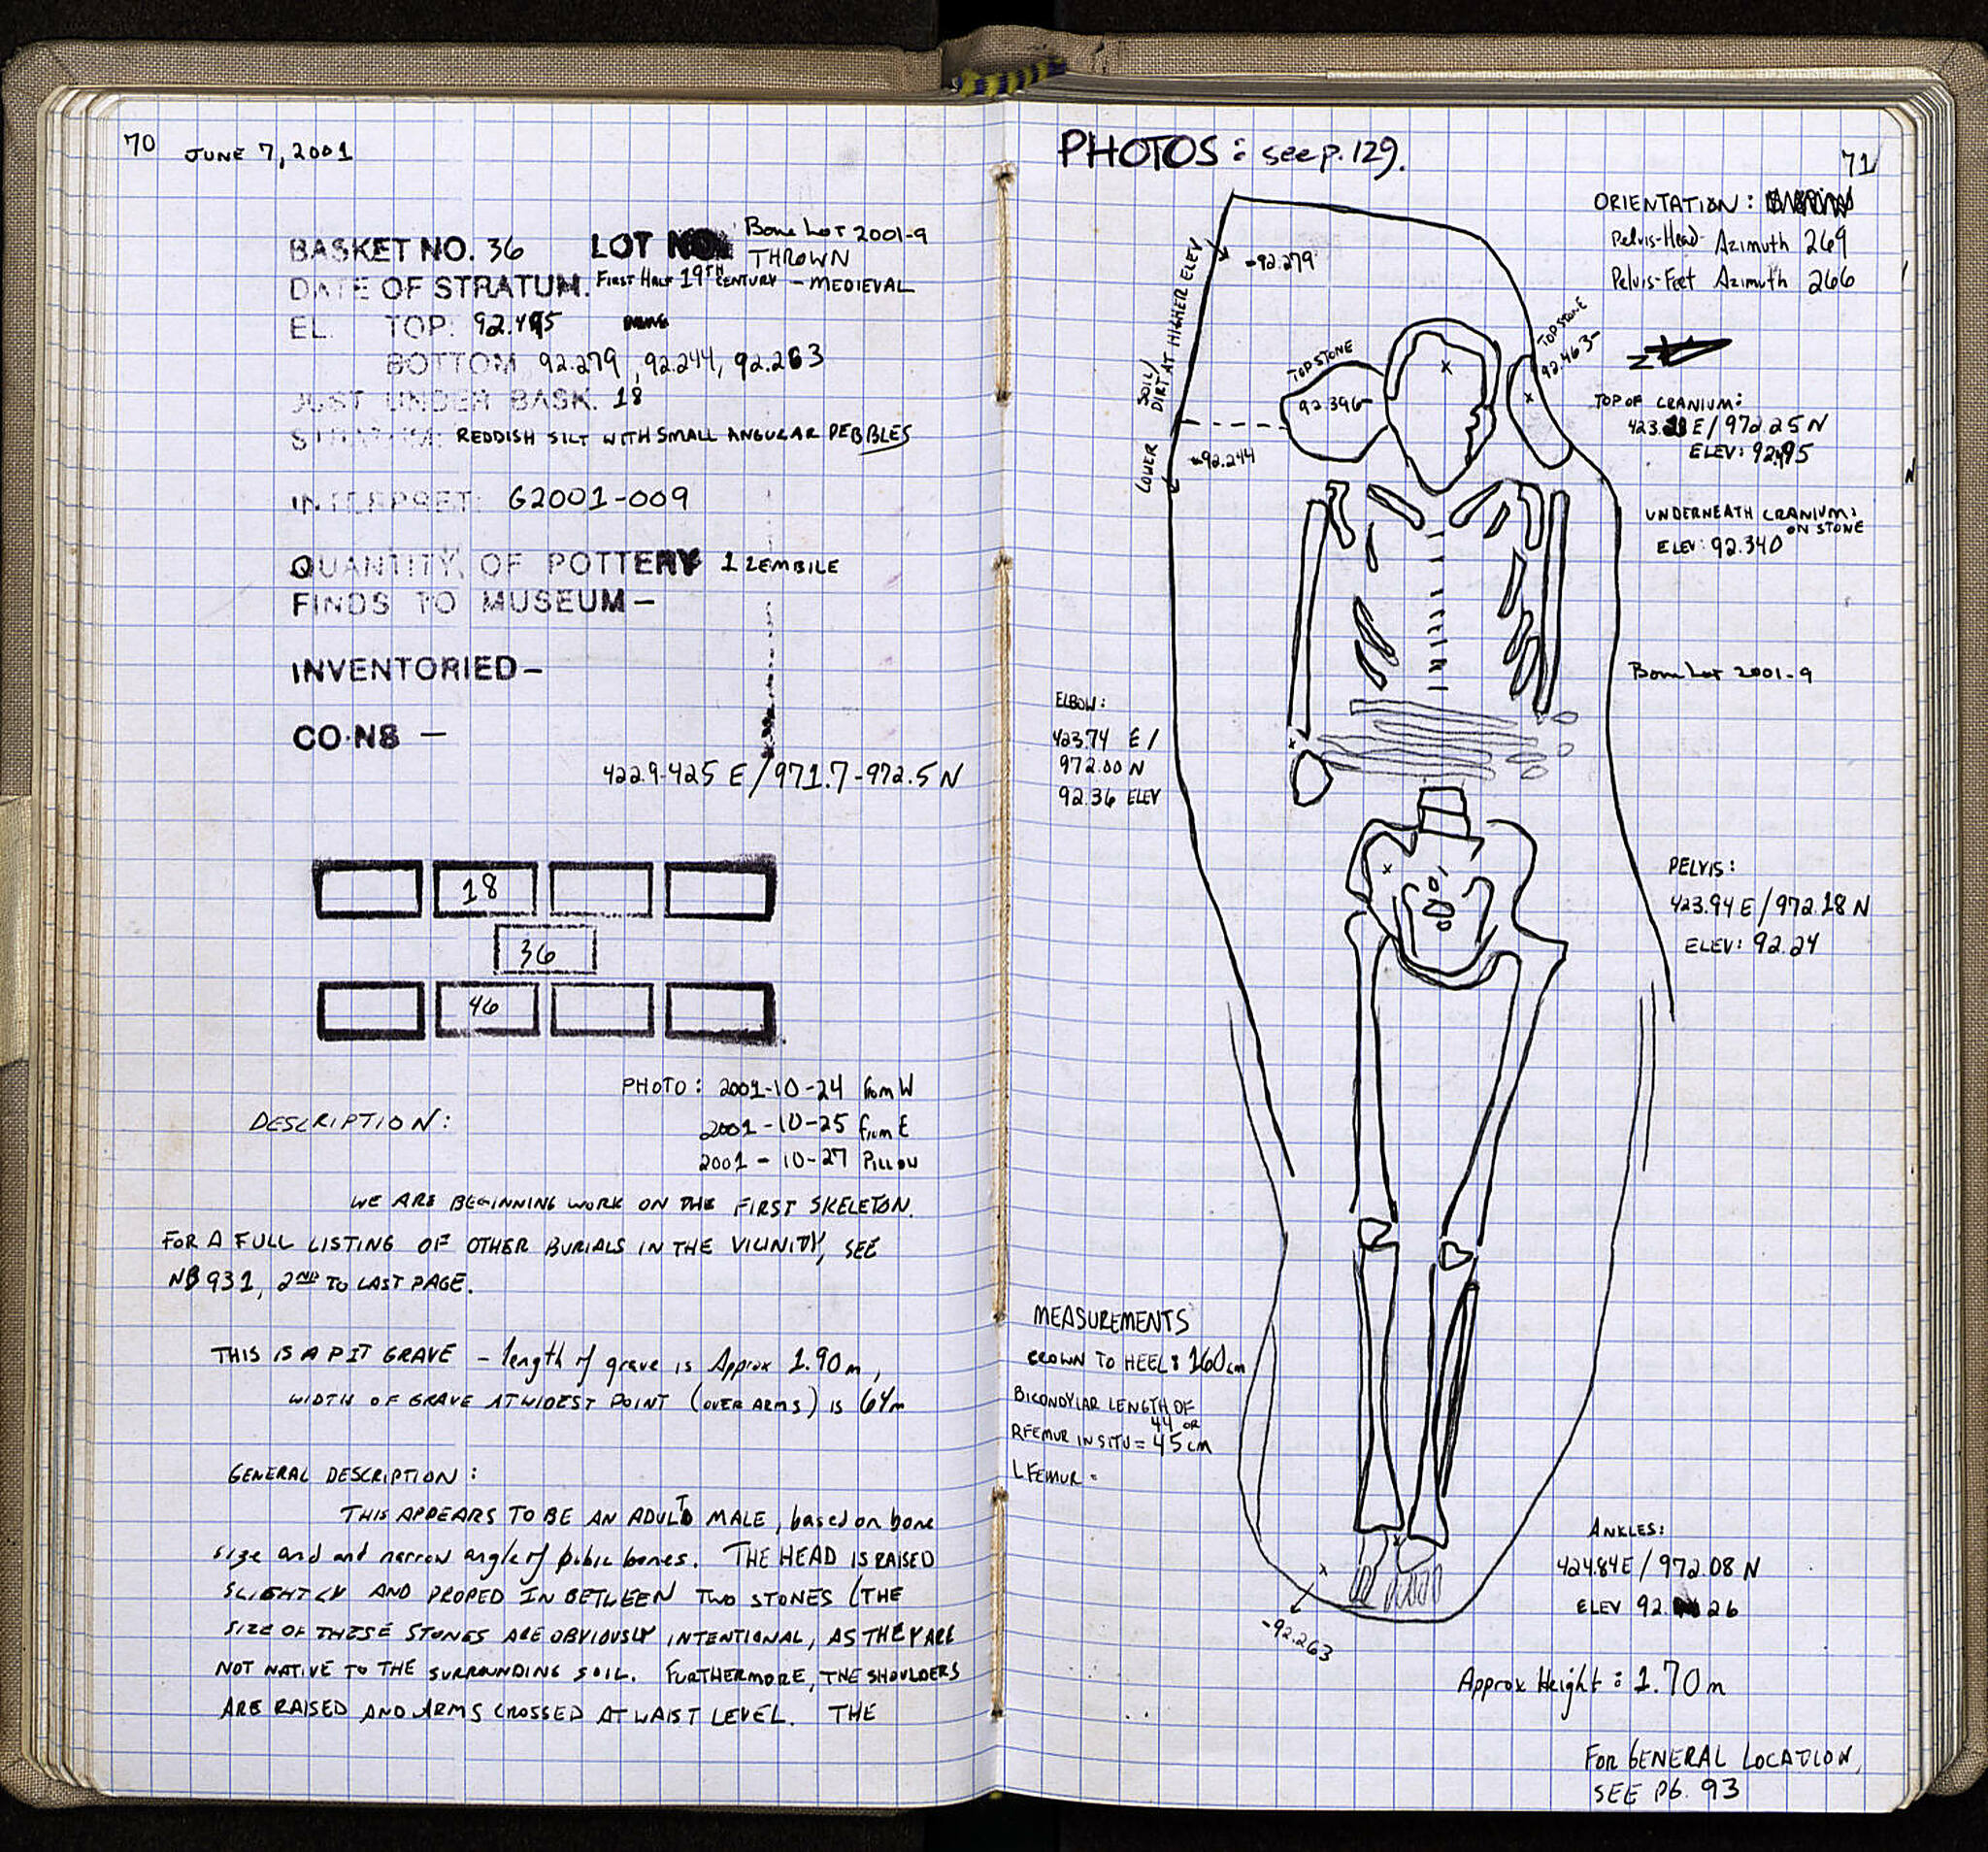 70 JUNE 7, 2001
BASKET NO. 36 LOT NO. Bone Lot 2001-9
THROWN
DATE OF STRATUM. FIRST HALF 19TH CENTURY - MEDIEVAL
EL. TOP: 92.495
BOTTOM 92.279, 92.244, 92.263
JUST UNDER BASK. 18
STRATUM: REDDISH SILT WITH SMALL ANGULAR PEBBLES
INTERPRET: G2001-009
QUANTITY, OF POTTERY 1 ZEMBILE
FINDS TO MUSEUM —
INVENTORIED —
COINS —
422.9-425 E/971.7-972.5 N
18
36
46
PHOTO: 2001-10-24 from W
DESCRIPTION: 2001-10-25 from E
2001-10-27 PILLOW
WE ARE BEGINNING WORK ON THE FIRST SKELETON.
FOR A FULL LISTING OF OTHER BURIALS IN THE VICINITY, SEE
NB 931, 2ND TO LAST PAGE.
THIS IS A PIT GRAVE - length of grave is Approx 1.90 m,
WIDTH OF GRAVE AT WIDEST POINT (OVER ARMS) IS 64m
GENERAL DESCRIPTION:
THIS APPEARS TO BE AN ADULT MALE, based on bone
size and and narrow angle of pubic bones. THE HEAD IS RAISED
SLIGHTLY AND PROPED IN BETWEEN TWO STONES (THE
SIZE OF THESE STONES ARE OBVIOUSLY INTENTIONAL, AS THEY ARE
NOT NATIVE TO THE SURROUNDING SOIL. FURTHERMORE, THE SHOULDERS
ARE RAISED AND ARMS CROSSED AT WAIST LEVEL. THE
PHOTOS: see p. 129.
71
ORIENTATION:
Pelvis-Head Azimuth 269
Pelvis-Feet Azimuth 266
-92.279
SOIL/
DIRT AT HIGHER ELEV
LOWER
-92.244
TOP STONE
92.396-
TOP STONE
92.463-
N
TOP OF CRANIUM:
E/972.25 N
ELEV: 92.495
UNDERNEATH CRANIUM:
ON STONE
ELEV: 92.340
N
Bone Lot 2001-9
ELBOW:
423.74 E/
972.00 N
92.36 ELEV
PELVIS:
423.94 E/972.18 N
ELEV: 92.24
MEASUREMENTS
CROWN TO HEEL: 160cm
BICONDYLAR LENGTH OF
44 OR
R FEMUR IN SITU = 45 cm
L FEMUR =
ANKLES:
424.84 E/972.08 N
ELEV 92.26
-92.263
Approx Height: 1.70 m
FOR GENERAL LOCATION,
SEE PG. 93